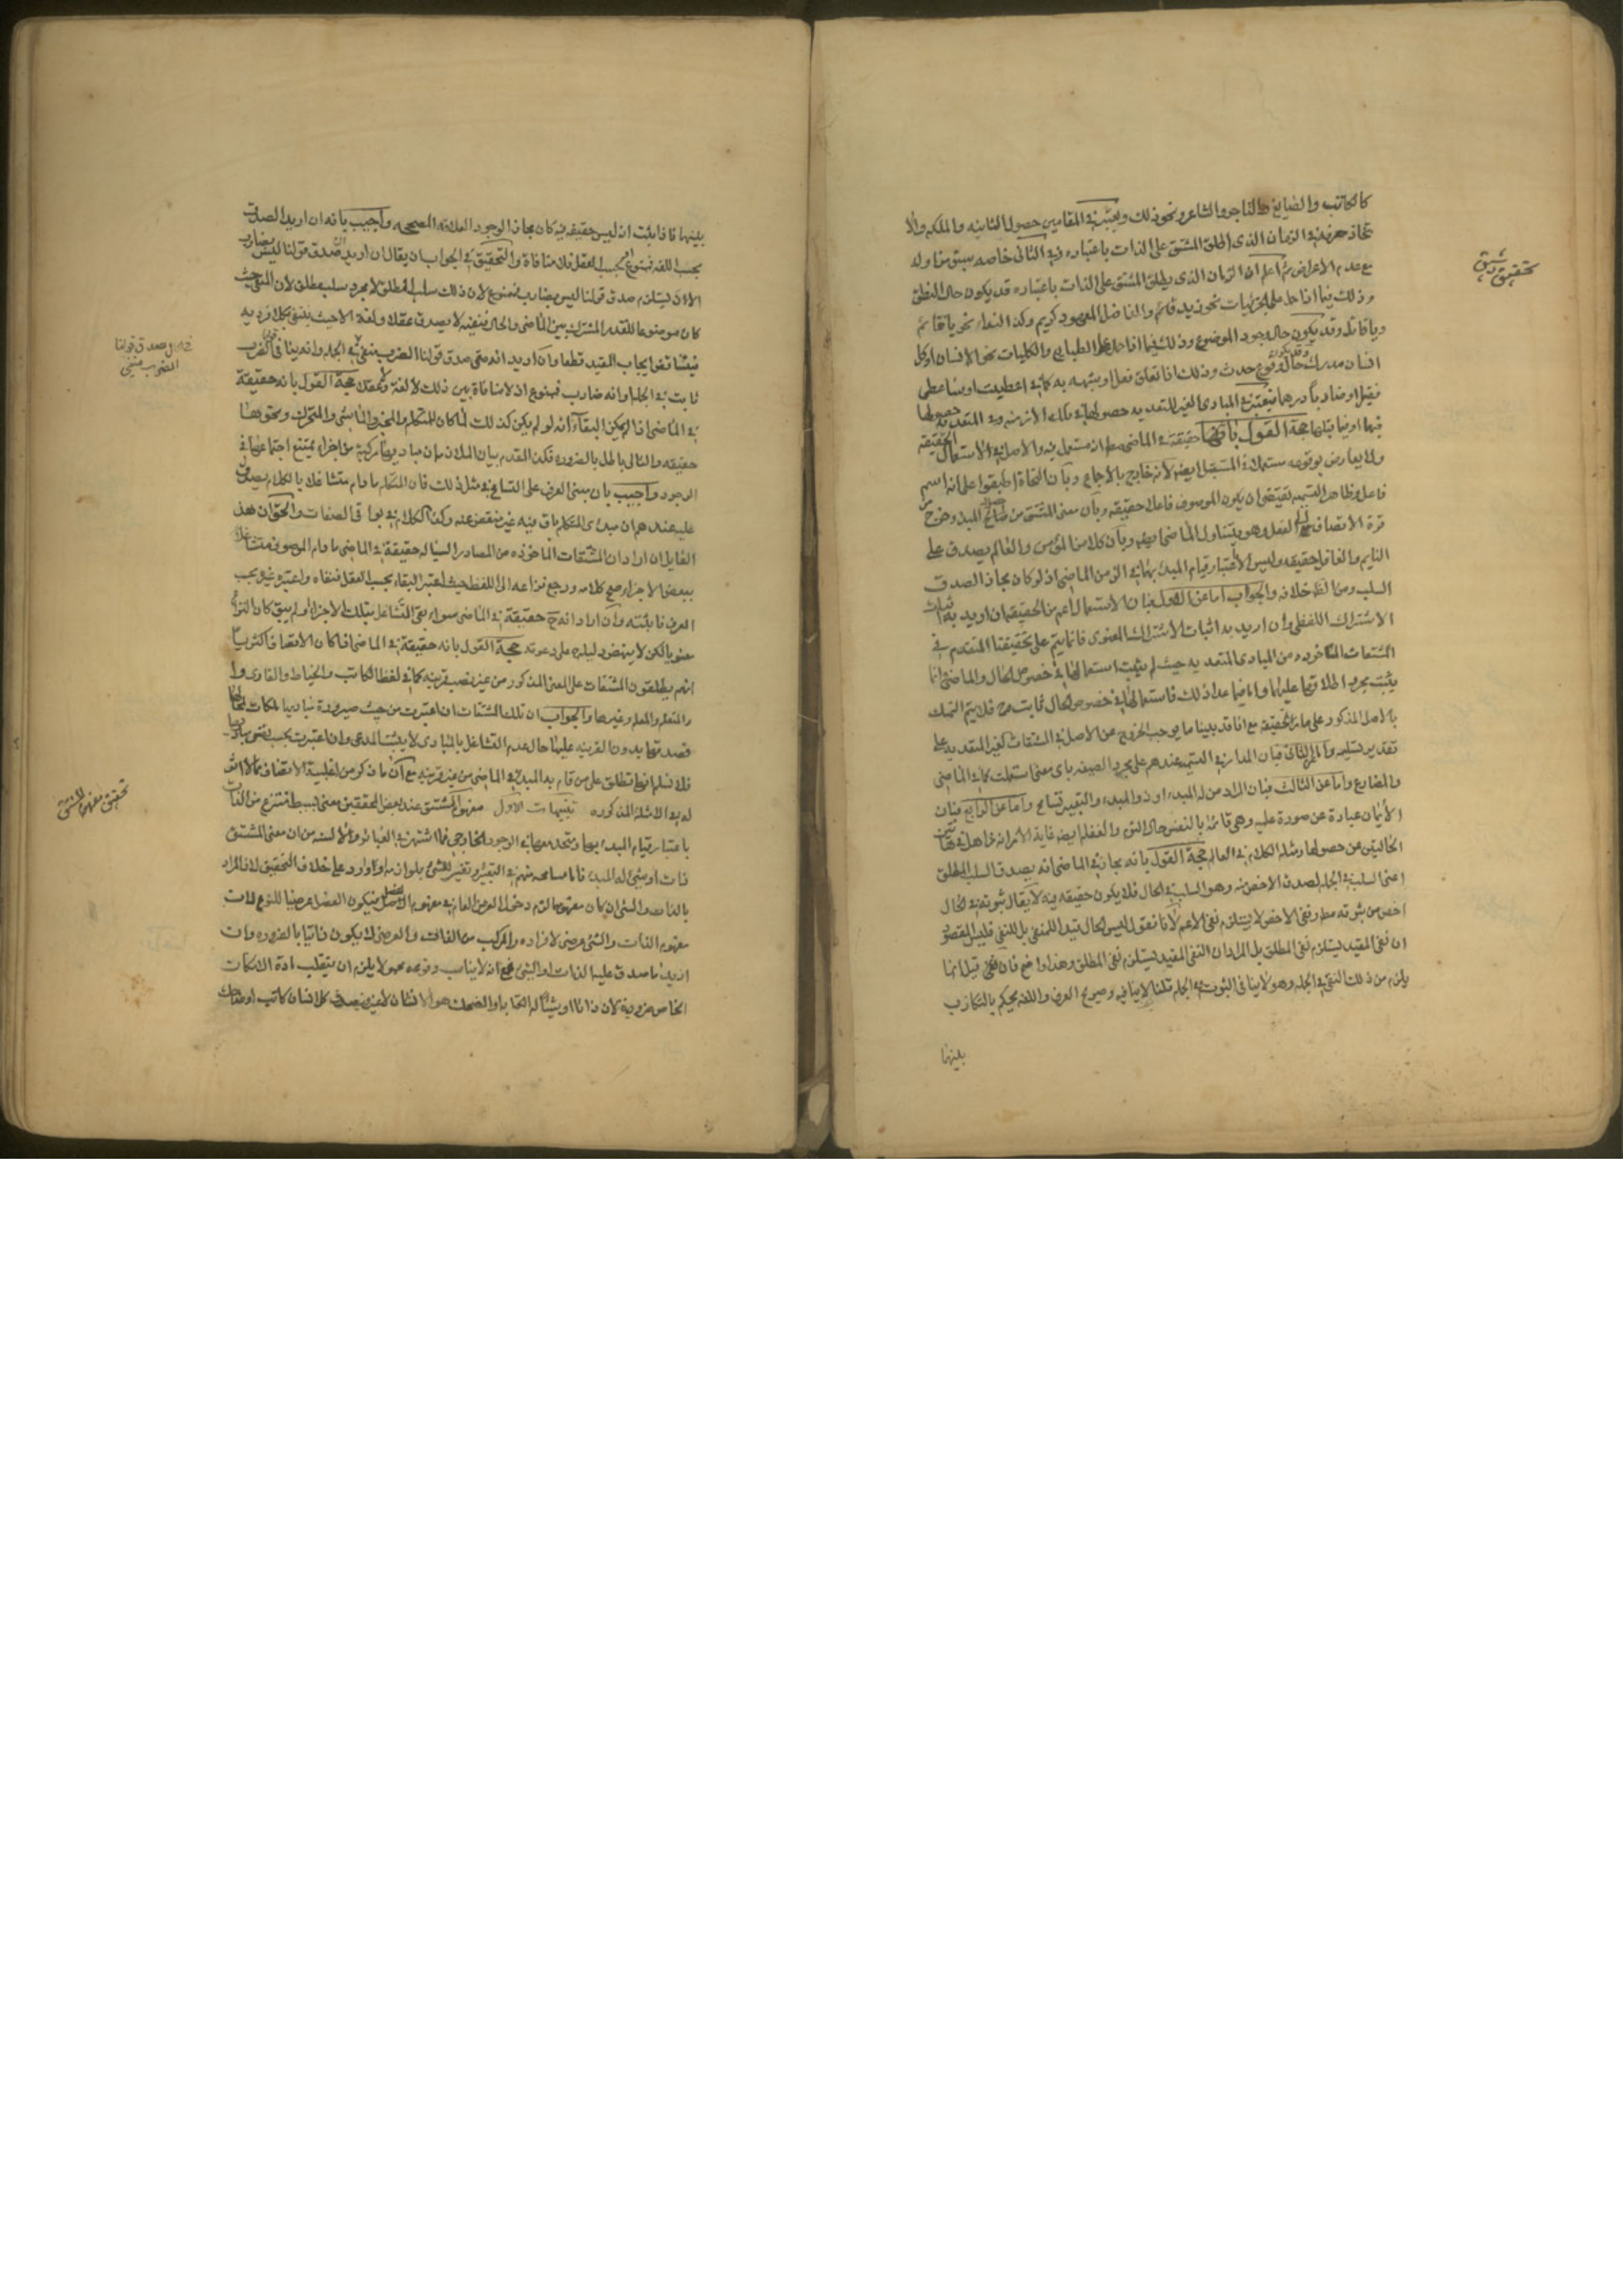 كالكاتب والصايغ والتاجر والشاعر ونحو ذلك ويعتبر في المقامين حصول الثانيه والملكه والا
تحقيق رشيق
مع عدم الاعراض ثم اعلم ان الزمان الذى يطلق المشتق على الذات باعتباره قد يكون حال النطق
وذلك فيما اذا حمل على الجزئيات نحو زيد قائم والفاضل المعهود كريم وكذا النداء نحو يا قائم
ويا قاتل وقد يكون حال وجود الموضوع وذلك فيما اذا حمل على الطبايع والكليات نحو الانسان او كل
انسان مدرك وقد يكون حال وقوع حدث وذلك اذا تعلق فعل او شبهه به كما في اعطيت او ساعطى
فقيرا او ضاربا درهما فيعتبر في المبادى الغير المتعديه حصولها في تلك الازمنه وفي المتعديه حصولها
فيها او فيما قبلها حجة القول بانها حقيقة في الماضى مط انه مستعمل فيه والاصل في الاستعمال الحقيقه
ولا يعارض بوقوعه مستعملا في المستقبل ايضا لانه خارج بالاجماع وبان النحاة اطبقوا على انه اسم
فاعل وظاهر التسميه يقتضى ان يكون الموصوف فاعلا حقيقه وبان معنى المشتق من حصل له المبدء وخرج من
قوة الاتصاف الى الفعل وهو يتناول الماضى ايضا وبان كلا من المؤمن والعالم يصدق على
النايم والغافل حقيقه وليس الا باعتبار قيام المبدء بهما في الزمن الماضى اذ لو كان مجازا لصدق
السلب ومن الظ خلافه والجواب اما عن الاول فبان الاستعمال اعم من الحقيقه ان اريد به اثبات
الاشتراك اللفظى وان اريد به اثبات الاشتراك المعنوى فانما يتم على تحقيقنا المتقدم في
المشتقات الماخوذه من المبادى المتعديه حيث لم يثبت استعمالها في خصوص الحال والماضى انما
يثبت مجرد اطلاقها عليهما واما فيما عدا ذلك فاستعمالها في خصوص الحال ثابت وح فلا يتم التمسك
بالاصل المذكور على مجاز الحقيقه مع انا قد بينا ما يوجب الخروج عن الاصل في المشتقات الغير المتعديه على
تقدير تسليمه واما عن الثانى فبان المدار في التسميه عندهم على مجرد الصيغه باى معنى استعملت كما في الماضى
والمضارع واما عن الثالث فبان المراد من له المبدء او ذو المبدء والتعبير تسامح واما عن الرابع فبان
الايمان عبارة عن صورة علميه وهى قائمة بالنفس حال النوم والغفله ايضا غاية الامر انه ذاهل في هاتين
الحالتين عن حصولها ومثله الكلام في العالم حجة القول بانه مجاز في الماضى انه يصدق السلب المطلق
اعنى السلب في الجمله لصدق الاخص منه وهو السلب في الحال فلا يكون حقيقه فيه لا يقال ثبوته في الحال
اخص من ثبوته مط ونفى الاخص لا يستلزم نفى الاعم لانا نقول ليس الحال قيدا للمنفى بل للنفى فليس المقصود
ان نفى المقيد يستلزم نفى المطلق بل المراد ان النفى المقيد يستلزم نفى المطلق وهذا واضح فان قيل انما
يلزم من ذلك النفى في الجمله وهو لا ينافى الثبوت في الجمله قلنا لا ينافيه وصريح العرف واللغه يحكم بالتكاذب
بينهما
بينهما فاذا ثبت انه ليس حقيقه فيه كان مجازا لوجود العلاقه المصححه واجيب بانه ان اريد الصدق
بحسب اللغه فممنوع او بحسب العقل فلا منافاة والتحقيق في الجواب ان يقال ان اريد ان صدق قولنا ليس بضارب
الان يستلزم صدق قولنا ليس بضارب فممنوع لان ذلك سلب المطلق لا مجرد سلب مطلق لان المنفى حيث
كان موضوعا للقدر المشترك بين الماضى والحال فنفيه لا يصدق عقلا ولغة الا حيث ينتفى بكلا فرديه
فى ان صدق قولنا
الضرب منفى
ثابت في الجمله او انه ضارب فممنوع اذ لا منافاة بين ذلك لا لغة ولا عقلا حجة القول بانه حقيقة
في الماضى اذا لم يكن البقاء انه لو لم يكن كذلك لما كان للمتكلم والمخبر والماشى والمتحرك ونحوها
حقيقه والتالى باطل بالضروره فكذا المقدم بيان الملازمه ان مباديها مركبة من اجزاء يمتنع اجتماعها في
الوجود واجيب بان مبنى العرف على التسامح في مثل ذلك فان المتكلم ما دام متشاغلا بالكلام يصدق
عليه عندهم ان مبدء المتكلم باق فيه غير منقض عنه وكذا الكلام في بواقى الصفات والحق ان هذا
القايل ان اراد ان المشتقات الماخوذه من المصادر السياله حقيقة في الماضى ما دام الموصوف متشاغلا
ببعض الاجزاء صح كلامه ورجع نزاعه الى اللفظ حيث اعتبر البقاء بحسب العقل فنفاه واعتبره غيره بحسب
العرف فاثبته وان اراد انه ح حقيقة في الماضى سواء بقى التشاغل بتلك الاجزاء او لم يبق كان النزاع
معنويا لكن لا ينهض دليله على دعوته حجة القول بانه حقيقة في الماضى اذا كان الاتصاف اكثريا
انهم يطلقون المشتقات على المعنى المذكور من غير نصب قرينه كما في لفظ الكاتب والخياط والقارى
والمتعلم والمعلم وغيرها والجواب ان تلك المشتقات ان اعتبرت من حيث صيرورة مباديها ملكات لها
فصدقها بدون القرينه عليها حال عدم التشاغل بالمبادى لا يثبت المدعى وان اعتبرت بحسب نفس مباديها
فلا نسلم انها تطلق على من قام به المبدء في الماضى من غير قرينه مع ان ما ذكر من اغلبية الاتصاف مما لا اثر
له في الامثلة المذكوره تنبيهات الاول مفهوم المشتق عند بعض المحققين معنى بسيط منتزع من الذات
تحقيق مفهوم المشتق
باعتبار قيام المبدء بها ومتحد معها في الوجود الخارجى فما اشتهر في العبائر وعلى الالسنه من ان معنى المشتق
ذات او شئ له المبدء فاما مسامحه منهم في التعبير وتفسير للشئ بلوازمه او وارد على خلاف التحقيق لان المراد
بالذات والشئ ان كان مفهومهما لزم دخول العرض العام في مفهوم الفصل فيكون الفصل عرضيا للنوع لان
مفهوم الذات والشئ عرضى لافراده والمركب من الذاتى والعرضى لا يكون ذاتيا بالضروره وان
اريد ما صدق عليه الذات او الشئ فمع انه لا يناسب وقوعه محمولا يلزم ان ينقلب مادة الامكان
الخاص ضرورية لان ذاتا او شيئا له الكتابه او الضحك هو الانسان لا غير فيصدق كل انسان كاتب او ضاحك